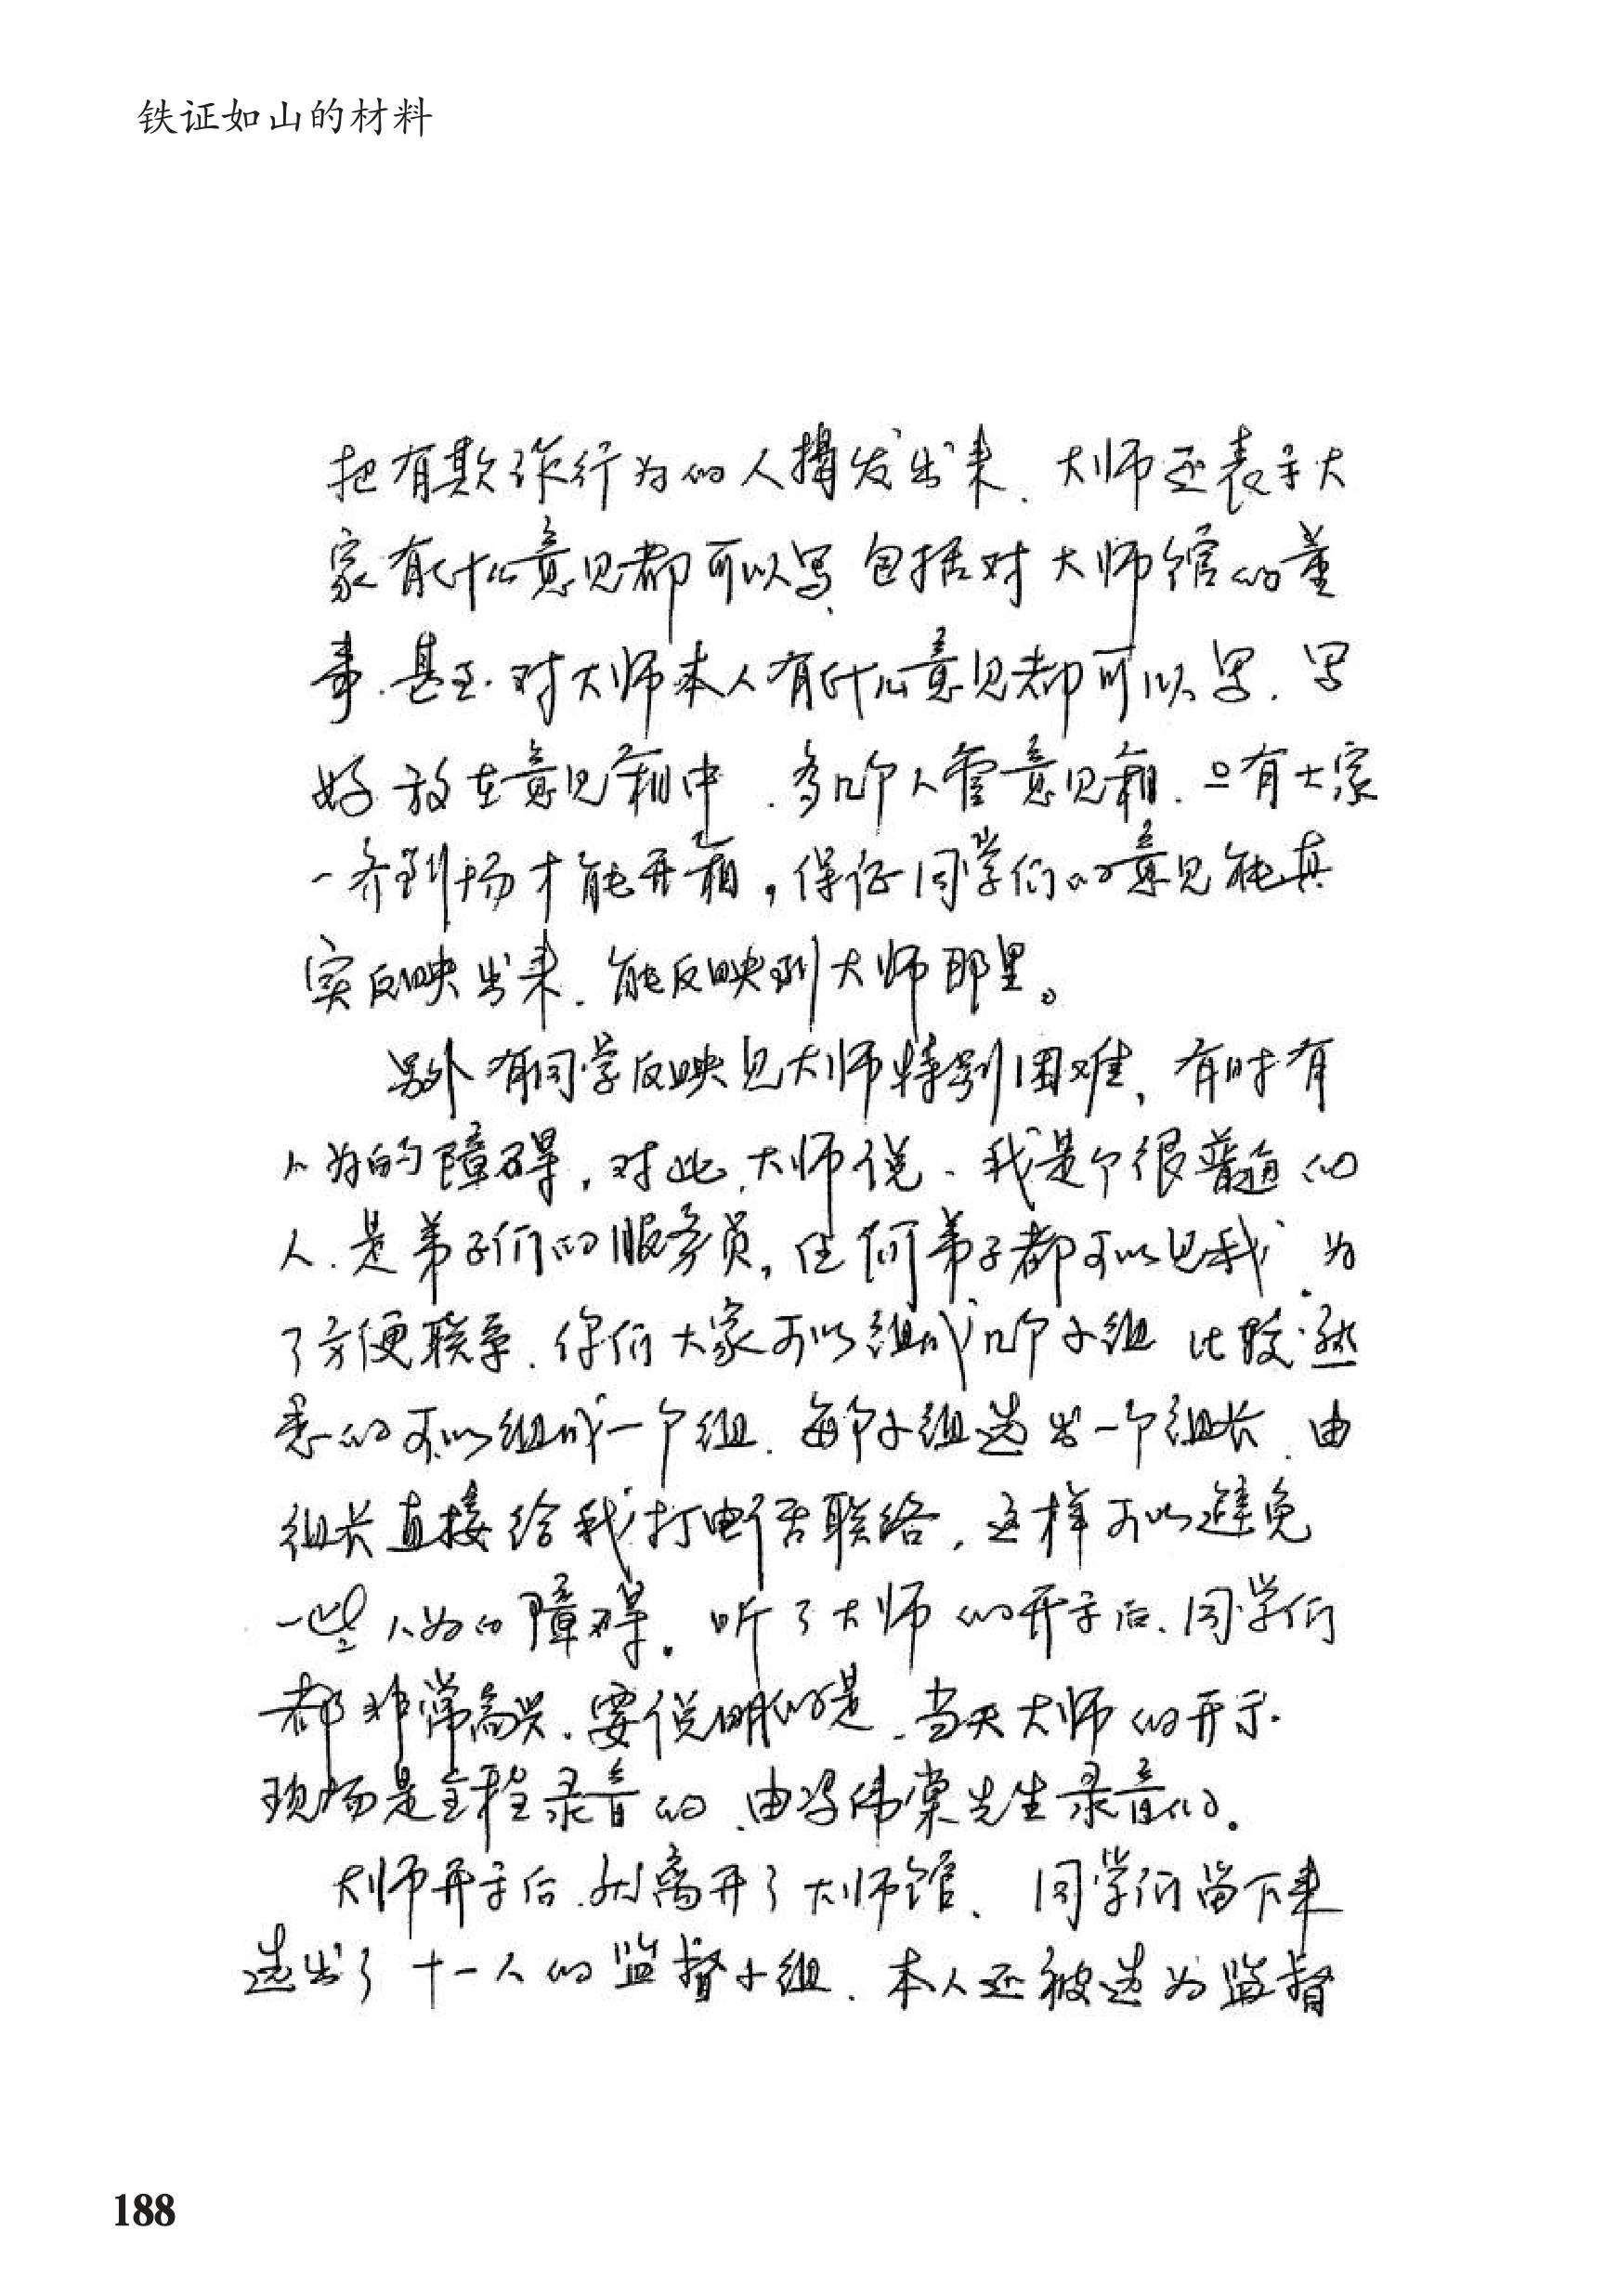 铁证如山的材料
把有欺诈行为的人揭发出来.大师还表示大
家有什么意见都可以写,包括对大师馆的董
事.甚至.对大师本人有什么意见都可以写.写
好放在意见箱中.多几个人管意见箱.只有大家
一齐到场才能开箱,保证同学们的意见能真
实反映出来.能反映到大师那里。
另外有同学反映见大师特别困难,有时有
人为的障碍,对此,大师说、我是个很普通的
人.是弟子们的服务员,任何弟子都可以见我.为
了方便联系.你们大家可以组成几个小组 比较熟
悉的可以组成一个组.每个小组选出一个组长.由
组长直接给我打电话联络,这样可以避免
一些人为的障碍.听了大师的开示后.同学们
都非常高兴.要说明的是.当天大师的开示.
现场是全程录音的.由冯伟棠先生录音的.
大师开示后.就离开了大师馆、同学们留下来
选出了十一人的监督小组.本人还被选为监督
188